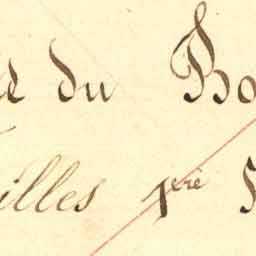 du Bo
illes 1ère